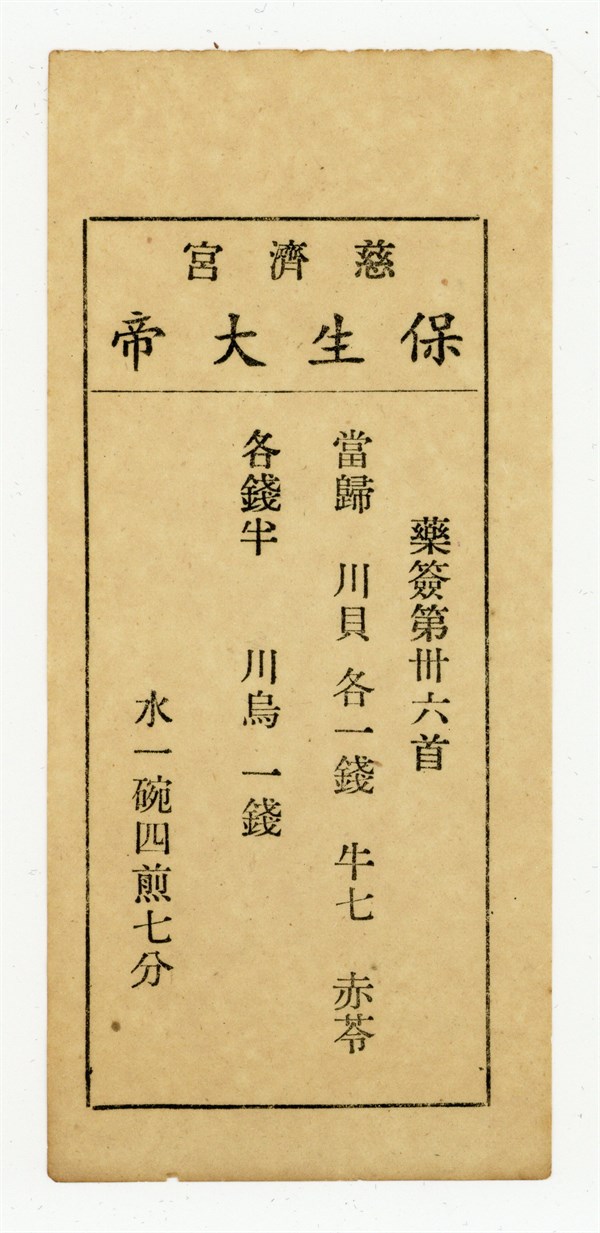 慈濟宮
保生大帝
藥簽第卅六首
當歸 川貝各一錢 牛七 赤苓
各錢半 川烏一錢
水一碗四煎七分